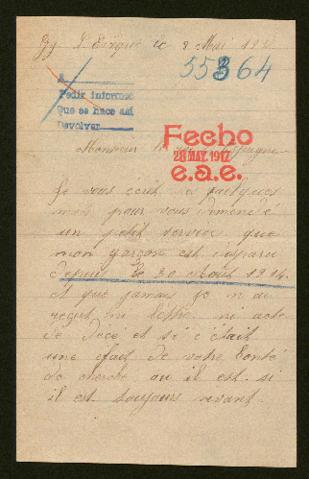 le 9 Mai 191
55364
A
Pedir informes
Que se hace así
Devolver
Fecho
28 MAY. 1917
e.a.e.
Monsieur
Je vous écrit quelques
mots pour vous demandé
un petit service que
mon garçon est disparu
depuis le 20 Août 1914.
et que jamais je n ai
reçut ni lettre ni acte
de décé et si c'était
une éfait de votre bonté
de cherché au il est si
il est toujours vivant.